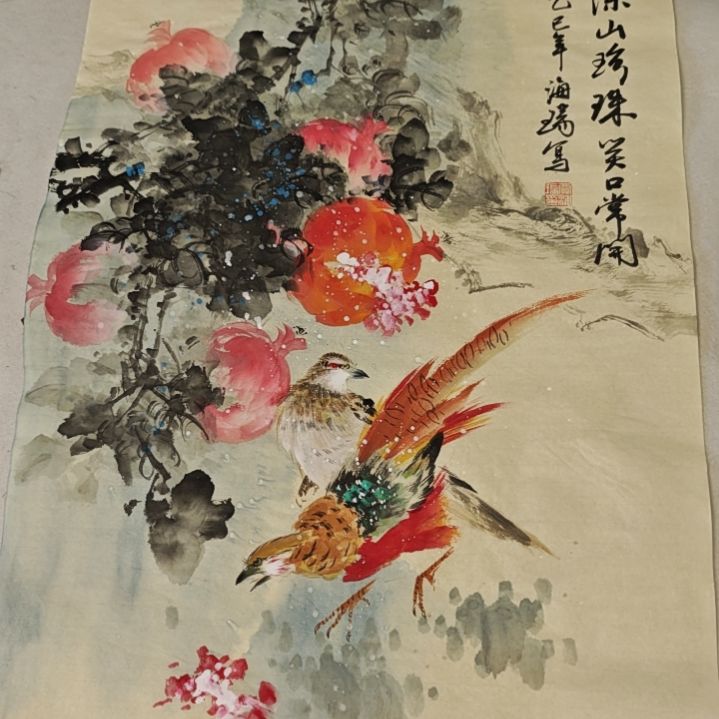 深山珍珠笑口常開
乙巳年海瑞寫